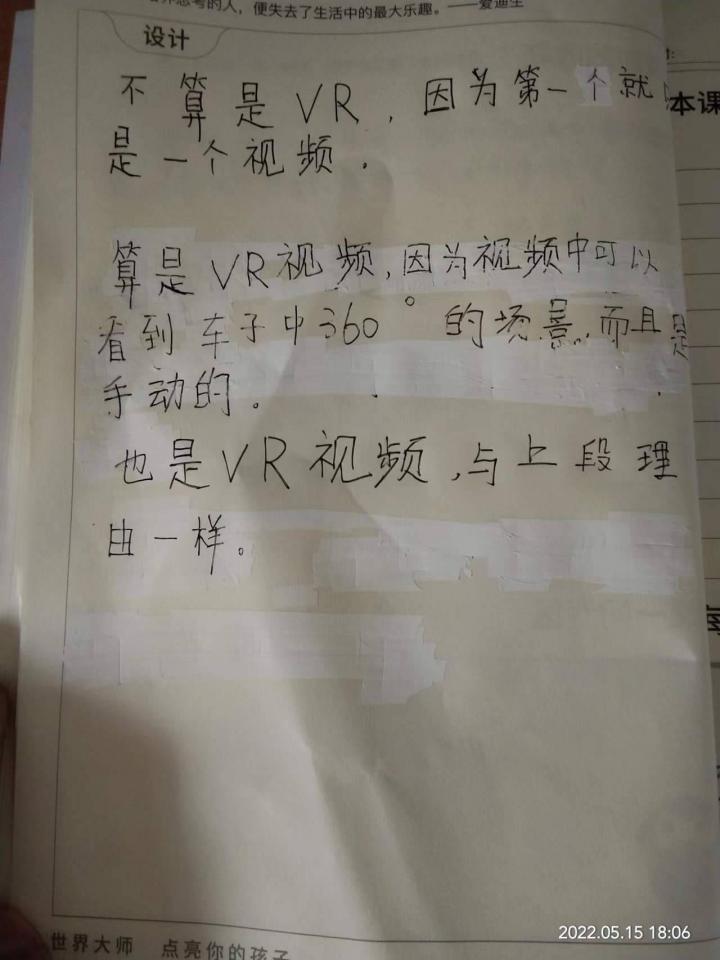 思考的人，便失去了生活中的最大乐趣。——爱迪生
设计
不算是VR，因为第一个就
是一个视频.
算是VR视频,因为视频中可以
看到车子中360°的场景.而且是
手动的。
也是VR视频,与上段理
由一样。
本课
世界大师 点亮你的孩子
2022.05.15 18:06